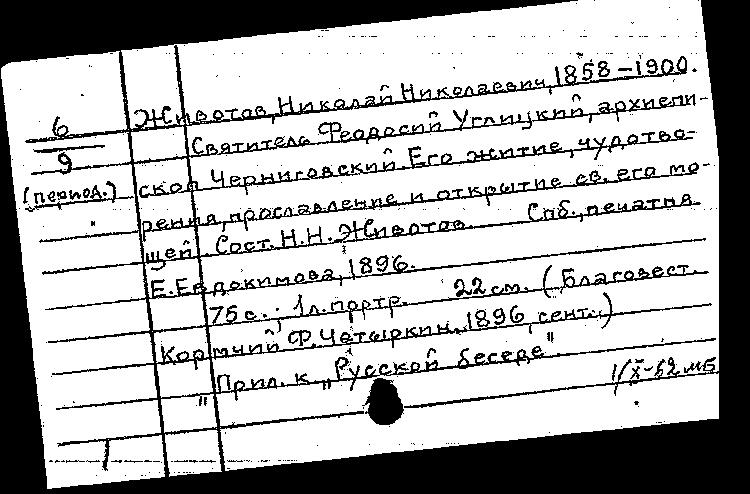 Животов, Николай Николаевич, 1858-1900.
6/9 Святитель Феодосий Углицкий, архиепи-
(период.) скоп Черниговский. Его житие, чудотво-
рения, прославление и открытие св. его мо-
щей. Сост. Н.Н. Животов. Спб., печатня
Е. Евдокимова, 1896.
75 с.; 1 л. портр. 22 см. (Благовест.
Кормчий Ф. Четыркин. 1896, сент.)
"Прил. к "Русской беседе".
1/X-52 МБ